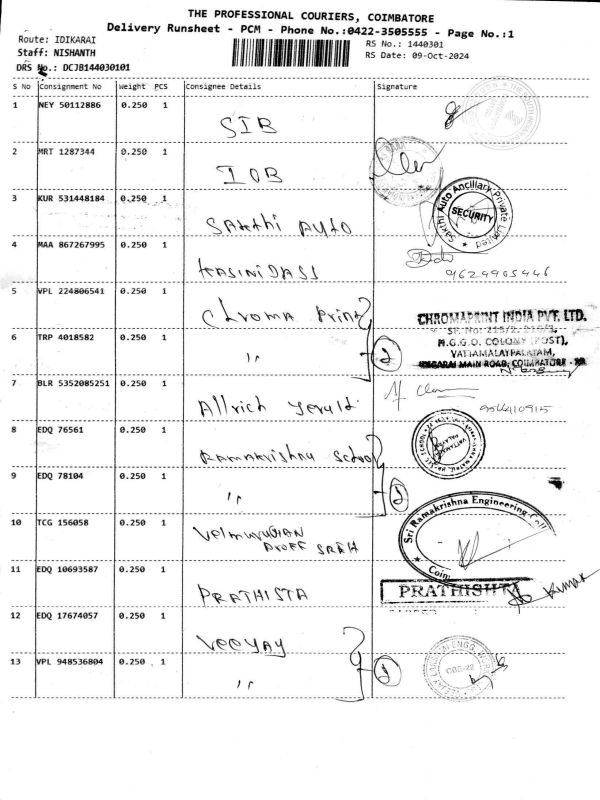 THE PROFESSIONAL COURIERS, COIMBATORE
Delivery Runsheet - PCM - Phone No.:0422-3505555 - Page No.:1
Route: IDIKARAI
RS No.: 1440301
Staff: NISHANTH
RS Date: 09-Oct-2024
DRS No.: DCJB144030101
S No Consignment No Weight PCS Consignee Details Signature
1 NEY 50112886 0.250 1
SIB
2 MRT 1287344 0.250 1
IOB
3 KUR 531448184 0.250 1
Sakthi Auto
Sakthi Auto Ancillary Private Limited
SECURITY
4 MAA 867267995 0.250 1
HASINI DASS
5 VPL 224806541 0.250 1
Chroma Print
CHROMAPRINT INDIA PVT. LTD.
SF. No: 215/2, 216/3,
N.G.G.O. COLONY (POST),
VATTAMALAYPALAYAM,
IDIGARAI MAIN ROAD, COIMBATORE -
6 TRP 4018582 0.250 1
"
2
7 BLR 5352085251 0.250 1
Allrich Jerald
8 EDQ 76561 0.250 1
Ramakrishna School
9 EDQ 78104 0.250 1
"
2
10 TCG 156058 0.250 1
Velmurugan
Proff SREH
Sri Ramakrishna Engineering
11 EDQ 10693587 0.250 1
PRATHISTA
PRATHISHTA
Kumar
12 EDQ 17674057 0.250 1
VEEYAY
13 VPL 948536804 0.250 1
"
2
COE-22